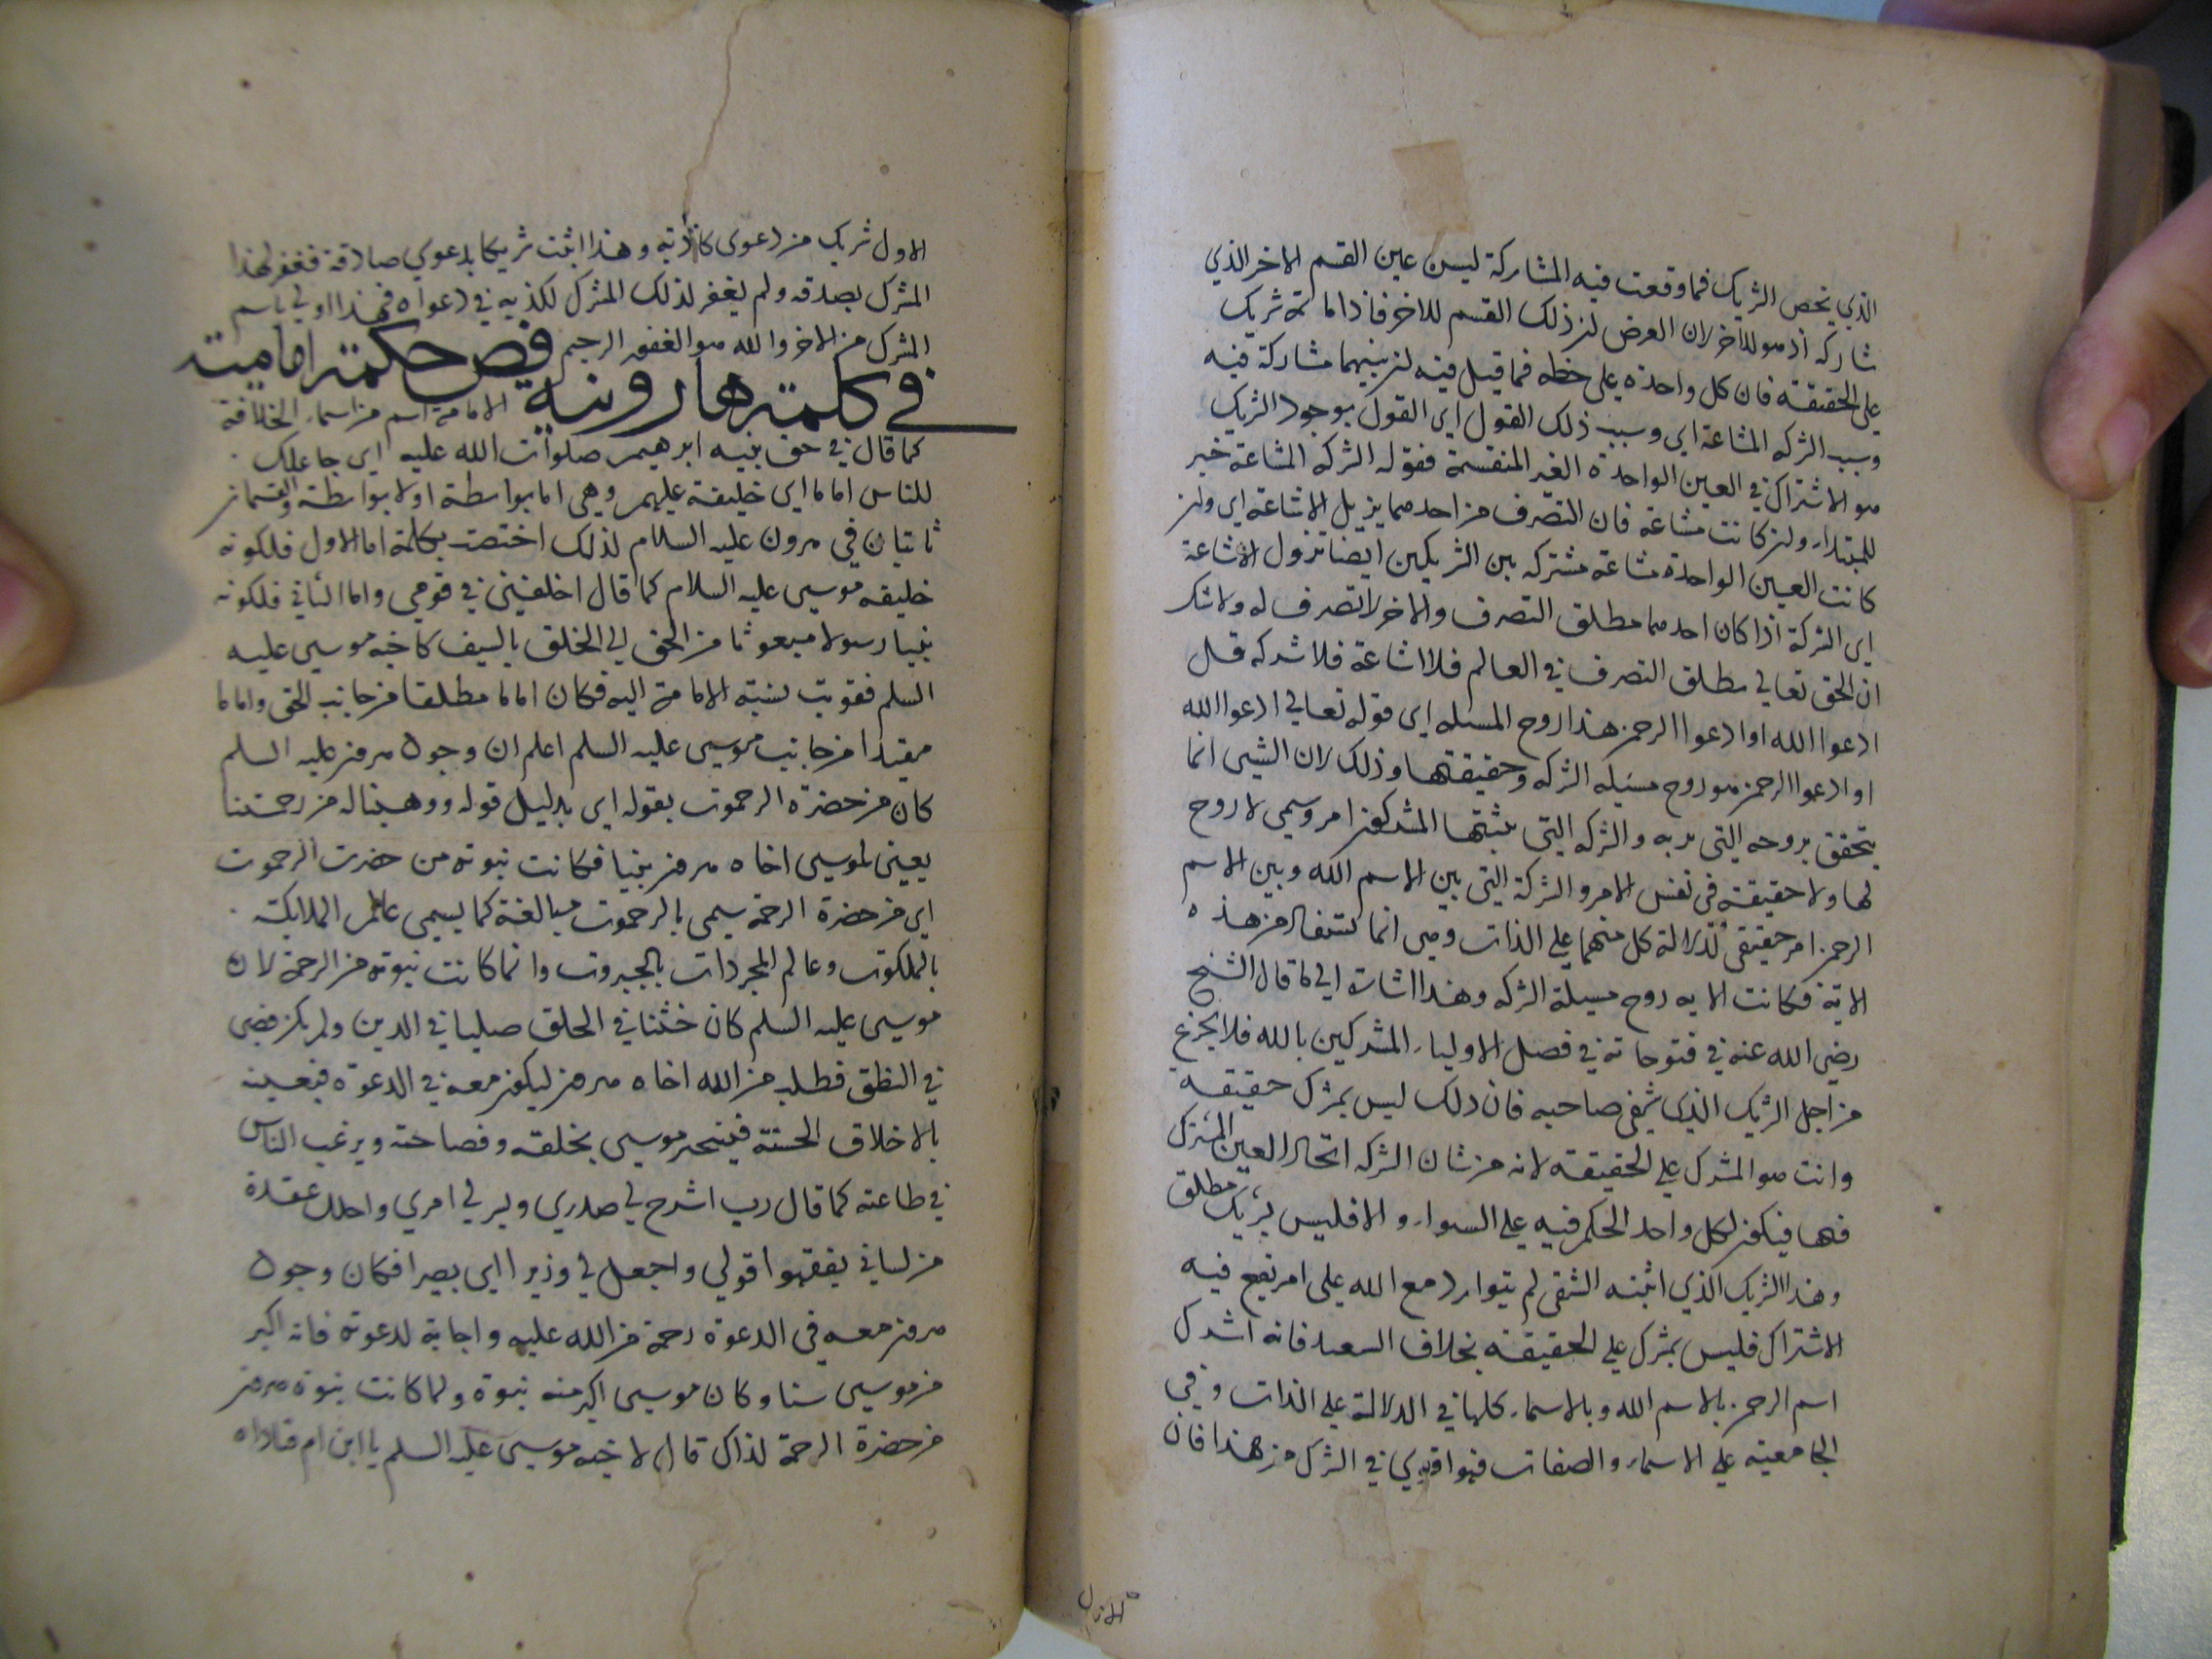 الذي يخص الشريك فما وقعت فيه المشاركة ليس عين القسم الاخر الذي
شاركه اذ هو للاخر لان العرض لنز ذلك القسم للاخر فاذا ما ثمة شريك
على الحقيقة فان كل واحدة على حظه فما قيل فيه لنز بينهما مشاركة فيه
وسبب الشركه المشاعة اى وسبب ذلك القول اى القول بوجود الشريك
هو الاشتراك في العين الواحدة الغير المنقسمة فقوله الشركه المشاعة خبر
للمبتداء ولنز كانت مشاعة فان التصرف من احدهما يزيل الاشاعة اى ولنز
كانت العين الواحدة مشاعة مشتركه بين الشريكين ايضا تزول الاشاعة
اى الشركة اذا كان احدهما مطلق التصرف والاخر لا تصرف له ولا شك
ان الحق تعالى مطلق التصرف في العالم فلا اشاعة فلا شركه قل
ادعوا الله او ادعوا الرحمن هذا روح المسئله اى قوله تعالى ادعوا الله
او ادعوا الرحمن هو روح مسئله الشركه وحقيقتها وذلك لان الشيى انما
يتحقق بروحه التى مربه والشركه التى يثبتها المشركون امر وسمي لا روح
لها ولا حقيقة في نفس الامر والشركة التى بين الاسم الله وبين الاسم
الرحمن امر حقيقى لدلالة كل منهما على الذات وهى انما تستفاد من هذه
الاية فكانت الايه روح مسيلة الشركه وهذا اشارة الى ما قال الشيخ
رضي الله عنه في فتوحاته في فصل الاولياء المشركين بالله فلا يجزع
من اجل الشريك الذي شقى صاحبه فان ذلك ليس بمشرك حقيقة
وانت هو المشرك على الحقيقة لانه من شان الشركه اتحاد العين المشترك
فيها فيكون لكل واحد الحكم فيه على السواء والا فليس بشريك مطلق
وهذا الشريك الذي اثبته الشقى لم يتوارد مع الله على امر يقع فيه
الاشتراك فليس بمشرك على الحقيقة بخلاف السعيد فانه اشرك
اسم الرحمن بالاسم الله وبالاسماء كلها في الدلالة على الذات وفي
الجامعية على الاسماء والصفات فهو اقوى في الشرك من هذا فان
الاول
الاول شريك من دعوى كاذبة وهذا اثبت شريكا بدعوى صادقة فغفر لهذا
المشرك بصدقه ولم يغفر لذلك المشرك لكذبه في دعواه فهذا اولى باسم
المشرك من الاخر والله هو الغفور الرحيم فص حكمة امامية
في كلمة هارونية الامامة اسم من اسماء الخلافة
كما قال في حق نبيه ابرهيم صلوات الله عليه اى جاعلك
للناس اماما اى خليفة عليهم وهى اما بواسطة او لا بواسطة والقسمان
ثابتان في هرون عليه السلام لذلك اختصت بكلمة اما الاول فلكونه
خليفه موسى عليه السلام كما قال اخلفنى في قومي واما الثاني فلكونه
نبيا رسولا مبعوثا من الحق الى الخلق بالسيف كاخيه موسى عليه
السلم فقويت نسبة الامامة اليه فكان اماما مطلقا من جانب الحق واماما
مقيدا من جانب موسى عليه السلم اعلم ان وجود هرون عليه السلم
كان من حضرة الرحموت بقوله اى بدليل قوله ووهبنا له من رحمتنا
يعنى لموسى اخاه هرون نبيا فكانت نبوته من حضرت الرحموت
اى من حضرة الرحمة يسمى بالرحموت مبالغة كما يسمى عالم الملايكة
بالملكوت وعالم المجردات بالجبروت وانما كانت نبوته من الرحمة لان
موسى عليه السلم كان خشنا في الخلق صليبا في الدين ولم يكن فصيح
في النطق فطلب من الله اخاه هرون ليكون معه في الدعوة فيعينه
بالاخلاق الحسنة فينجبر موسى بخلقه وفصاحته ويرغب الناس
في طاعته كما قال رب اشرح لي صدري ويسر لي امري واحلل عقدة
من لساني يفقهوا قولي واجعل لي وزيرا الى بصيرا فكان وجود
هرون معه في الدعوة رحمة من الله عليه واجابة لدعوته فانه اكبر
من موسى سنا وكان موسى اكبر منه نبوة ولما كانت نبوة هرون
من حضرة الرحمة لذاك قال لاخيه موسى عليه السلم يا ابن ام فناداه